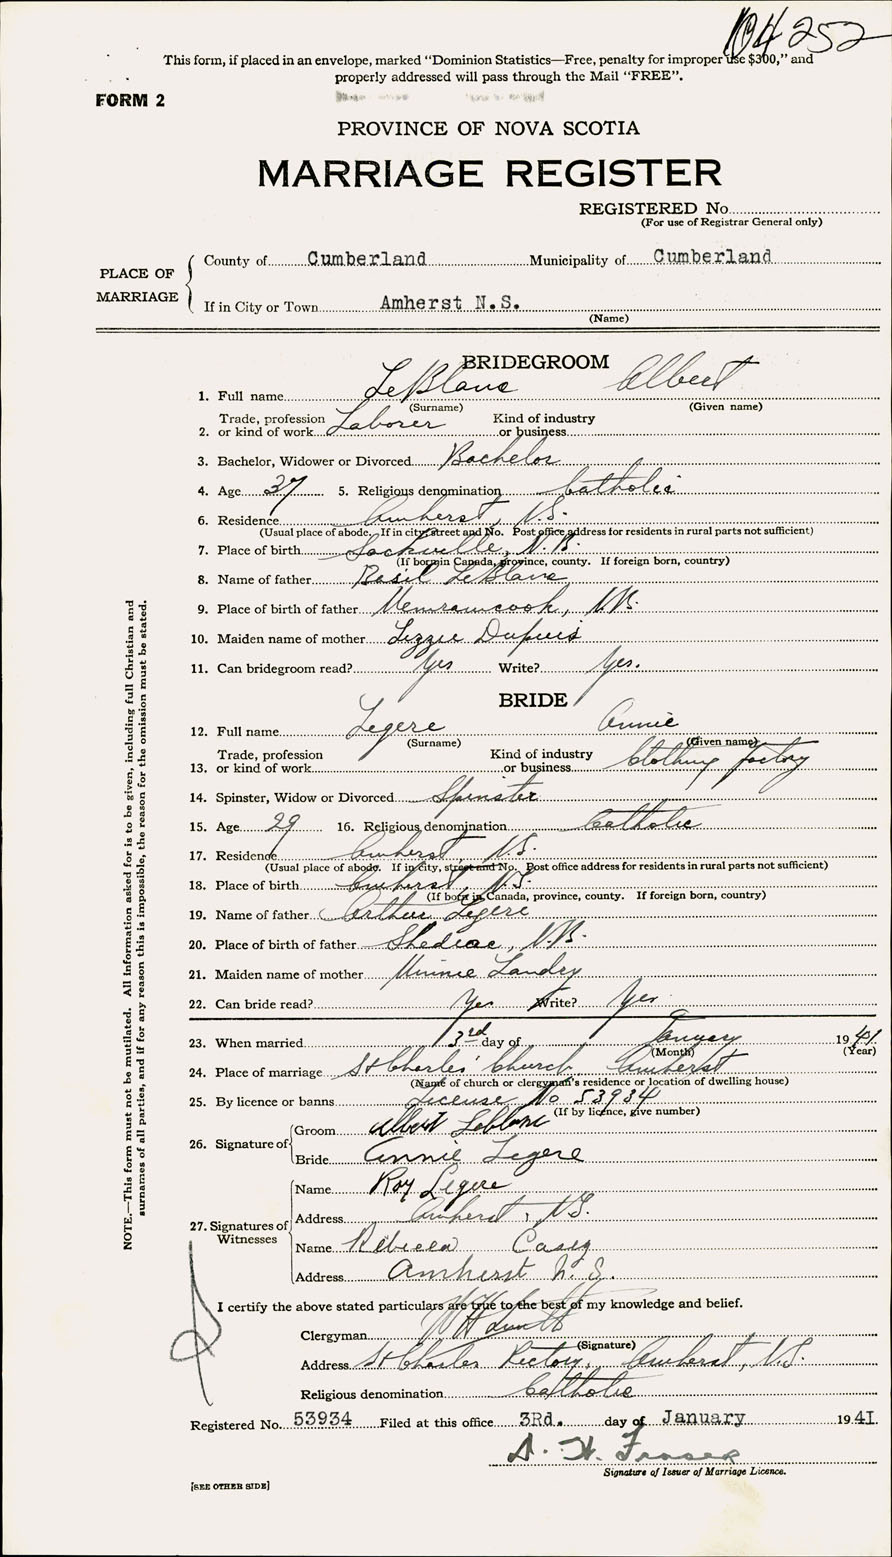 104252
This form, if placed in an envelope, marked "Dominion Statistics—Free, penalty for improper use $300," and
properly addressed will pass through the Mail "FREE".
FORM 2
PROVINCE OF NOVA SCOTIA
MARRIAGE REGISTER
REGISTERED No.
(For use of Registrar General only)
PLACE OF MARRIAGE
County of Cumberland Municipality of Cumberland
If in City or Town Amherst N.S.
(Name)
BRIDEGROOM
1. Full name LeBlanc Albert
(Surname) (Given name)
2. Trade, profession or kind of work Laborer Kind of industry or business
3. Bachelor, Widower or Divorced Bachelor
4. Age 37 5. Religious denomination Catholic
6. Residence Amherst, N.S.
(Usual place of abode. If in city street and No. Post office address for residents in rural parts not sufficient)
7. Place of birth Sackville, N.B.
(If born in Canada, province, county. If foreign born, country)
8. Name of father Basil LeBlanc
9. Place of birth of father Memramcook, N.B.
10. Maiden name of mother Lizzie Dupuis
11. Can bridegroom read? Yes Write? Yes.
BRIDE
12. Full name Legere Annie
(Surname) (Given name)
13. Trade, profession or kind of work Kind of industry or business Clothing factory
14. Spinster, Widow or Divorced Spinster
15. Age 29 16. Religious denomination Catholic
17. Residence Amherst, N.S.
(Usual place of abode. If in city, street and No. Post office address for residents in rural parts not sufficient)
18. Place of birth Amherst, N.S.
(If born in Canada, province, county. If foreign born, country)
19. Name of father Arthur Legere
20. Place of birth of father Shediac, N.B.
21. Maiden name of mother Minnie Landry
22. Can bride read? Yes Write? Yes
23. When married 3rd day of January 1941
(Month) (Year)
24. Place of marriage St Charles' Church, Amherst
(Name of church or clergyman's residence or location of dwelling house)
25. By licence or banns License No 53934
(If by licence, give number)
26. Signature of Groom Albert Leblanc
Bride Annie Legere
27. Signatures of Witnesses
Name Roy Legere
Address Amherst, N.S.
Name Rebecca Casey
Address Amherst N.S.
I certify the above stated particulars are true to the best of my knowledge and belief.
Clergyman
(Signature)
Address St Charles Rectory, Amherst, N.S.
Religious denomination Catholic
Registered No. 53934 Filed at this office 3Rd. day of January 1941
D. H. Fraser
Signature of Issuer of Marriage Licence.
[SEE OTHER SIDE]
NOTE.—This form must not be mutilated. All information asked for is to be given, including full Christian and
surnames of all parties, and if for any reason this is impossible, the reason for the omission must be stated.